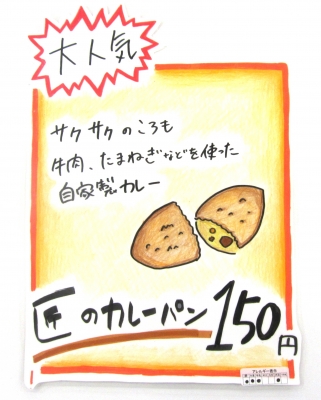 大人気
サクサクのころも
牛肉、たまねぎなどを使った
自家製カレー
匠のカレーパン 150円